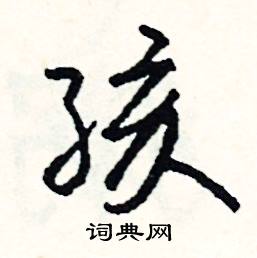 孩
词典网